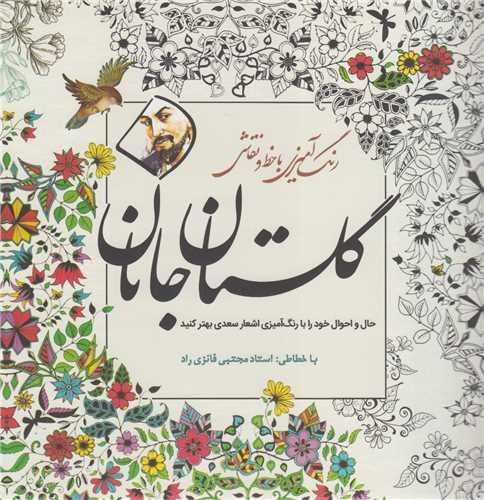 رنگ آمیزی با خط و نقاشی
گلستان جانان
حال و احوال خود را با رنگ‌آمیزی اشعار سعدی بهتر کنید
با خطاطی: استاد مجتبی فائزی راد